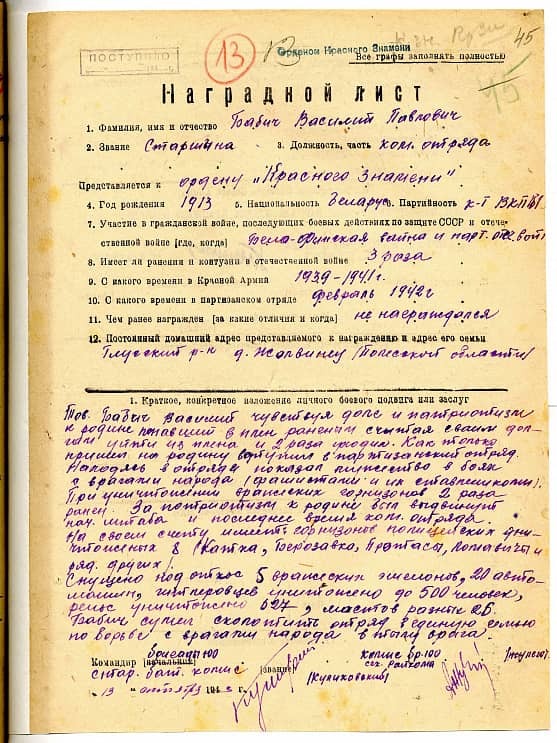 45
13
13
Орденом Красного Знамени
ПОСТУПИЛО
Все графы заполнять полностью
15
Наградной лист
1. Фамилия, имя и отчество Бабич Василий Павлович
2. Звание Старшина 3. Должность, часть ком. отряда
Представляется к ордену „Красного Знамени"
4. Год рождения 1913 5. Национальность Беларус 6. Партийность к-т ВКП(б)
7. Участие в гражданской войне, последующих боевых действиях по защите СССР и отече-
ственной войне [где, когда] Бело-Финская война и парт. от.
8. Имеет ли ранения и контузии в отечественной войне 3 раза
9. С какого времени в Красной Армии 1939-1941 г.
10. С какого времени в партизанском отряде февраль 1942 г
11. Чем ранее награжден [за какие отличия и когда] не награждался
12. Постоянный домашний адрес представляемого к награждению и адрес его семьи
Глусский р-н д. (Полесской области)
1. Краткое, конкретное изложение личного боевого подвига или заслуг
Тов. Бабич Василий чувствуя долг и патриотизм
к родине попавший в плен раненым считая своим дол-
гом уйти из плена и 2 раза уходил. Как только
пришел на родину вступил в партизанский отряд.
Находясь в отряде показал мужество в боях
с врагами народа (фашистами и их ставленниками).
При уничтожении вражеских гарнизонов 2 раза
ранен. За патриотизм к родине был выдвинут
нач. штаба и последнее время ком. отряда.
На своем счету имеет гарнизонов полицейских уни-
чтоженных 8 (Катка, Березовка, Протаса, и
ряд других).
Спущено под откос 5 вражеских эшелонов, 20 авто-
машин, гитлеровцев уничтожено до 500 человек,
рельс уничтожено 527, мостов разных 26.
Бабич сумел сколотить отряд в единую семью
по борьбе с врагами народа в тылу врага.
Командир [начальник] звание комис бр-100
стар. бат. комис сек. райкома
(Куликовский)
13 октября 194